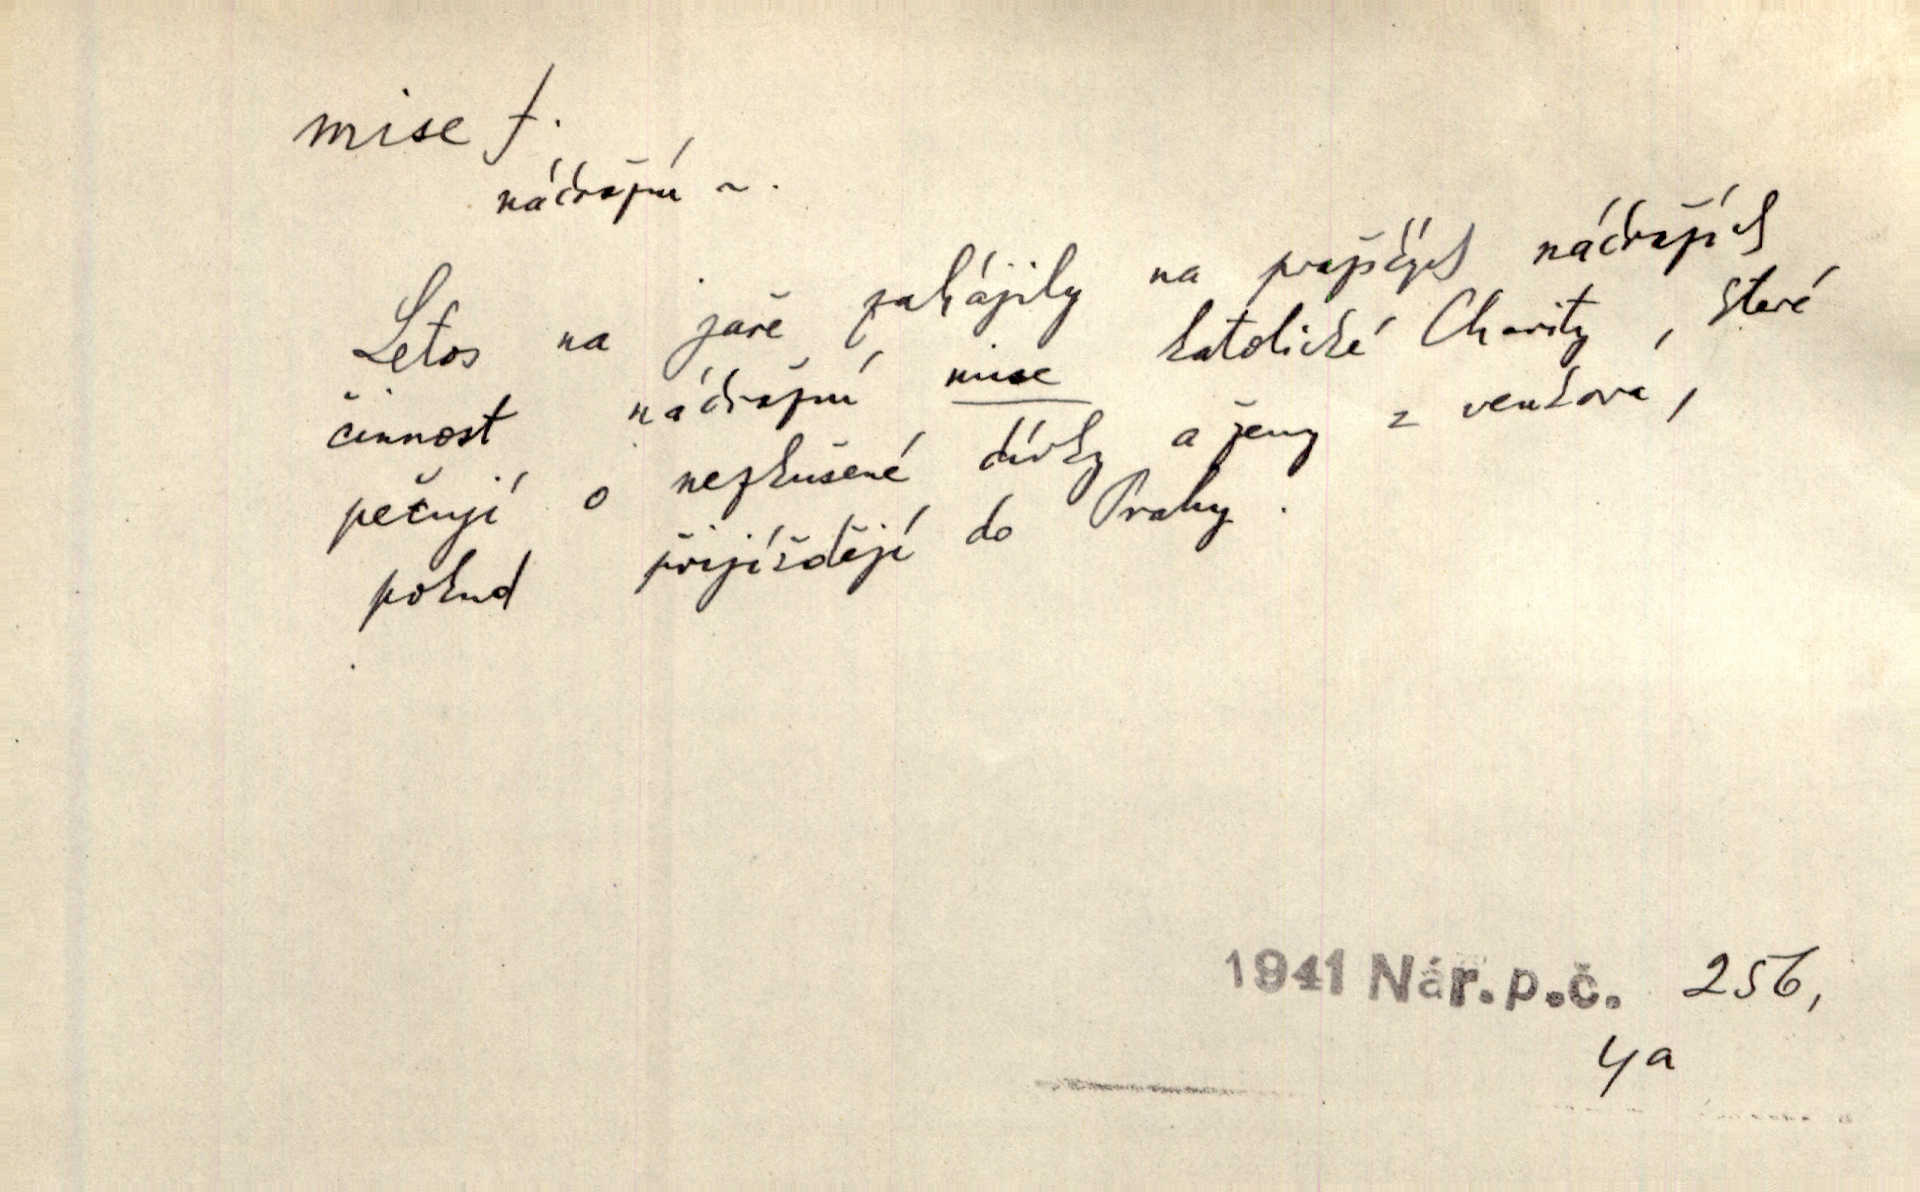 mise f.
nádražní ~.
Letos na jaře zahájily na pražských nádražích
činnost nádražní mise katolické Charity, které
pečují o nezkušené dívky a ženy z venkova,
pokud přijíždějí do Prahy.
1941 Nár. p.č. 256,
4a